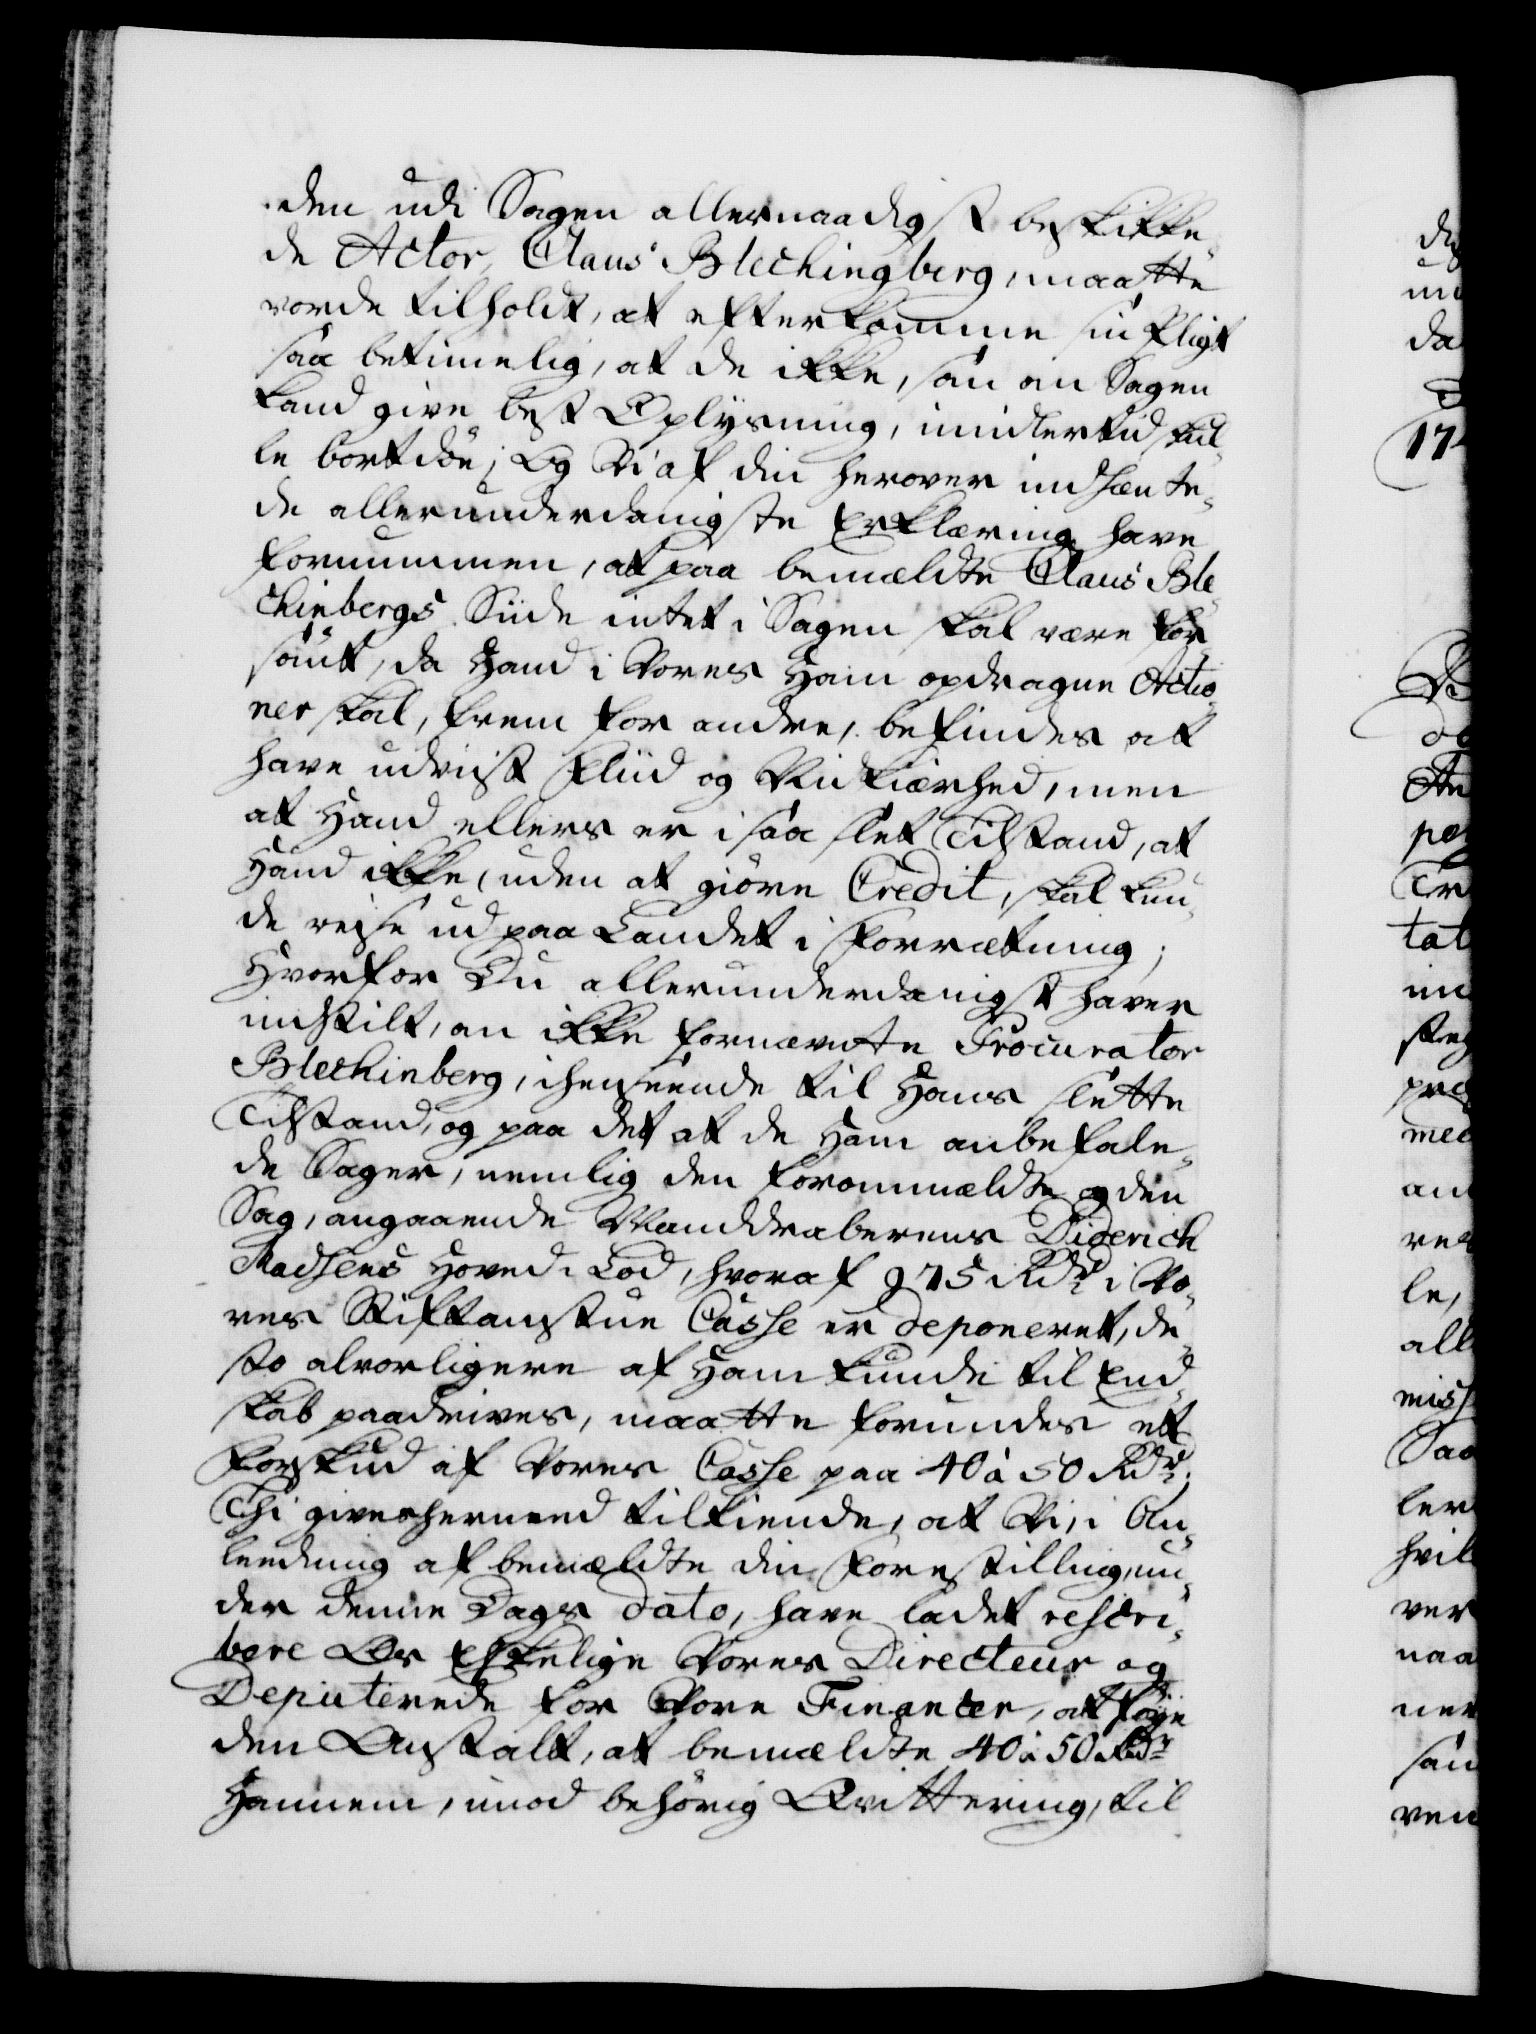 den udi Sagen allernaadigst beskikke„
de Actor, Claus Blechingberg, maatte
vorde tilholdt, at efterkomme sin Pligt
saa betimelig, at de ikke, som om Sagen
kand give best Oplysning, imidlertid skul„
le bortdöe; Og Vi af din herover indhænte„
de allerunderdanigste Erklæring have
fornummen, at paa bemældte Claus Ble„
chinbergs Siide intet i Sagen skal være for„
sömt, da Hand i Vores Ham opdragne Actio„
ner skal, frem for andre, befindes at
have udviist Fliid og Vindskibhed, men
at Hand ellers er i saa slet Tilstand, at
Hand ikke, uden at giöre Credit, skal kun„
de reyse ud paa Landet i Forretning;
Hvorfor Du allerunderdanigst haver
indstilt, om ikke fornævnte Procurator
Blechinberg, i henseende til Hans slette
Tilstand, og paa det at de Ham anbefale„
de Sager, nemlig den forommældte og den
Sag, angaaende Manddraberens Diderich
Madsens Hoved Lod, hvoraf 975 Rdr i Vo„
res Stiftamtstue Casse er deponeret, de„
sto alvorligere af Ham kunde til End„
skab paadrives, maatte forundes et
Forskud af Vores Casse paa 40 à 50 Rdr;
Thi gives hermed tilkiende, at Vi, i An„
leedning af bemældte din Forestilling, un„
der denne Dags dato, have ladet rescri„
bere Os Elskelige Vores Directeur og
Deputerede for Vore Financer, at föye
den Anstalt, at bemældte 40 à 50 Rdr
Hannem, imod behörig Qvittering, til